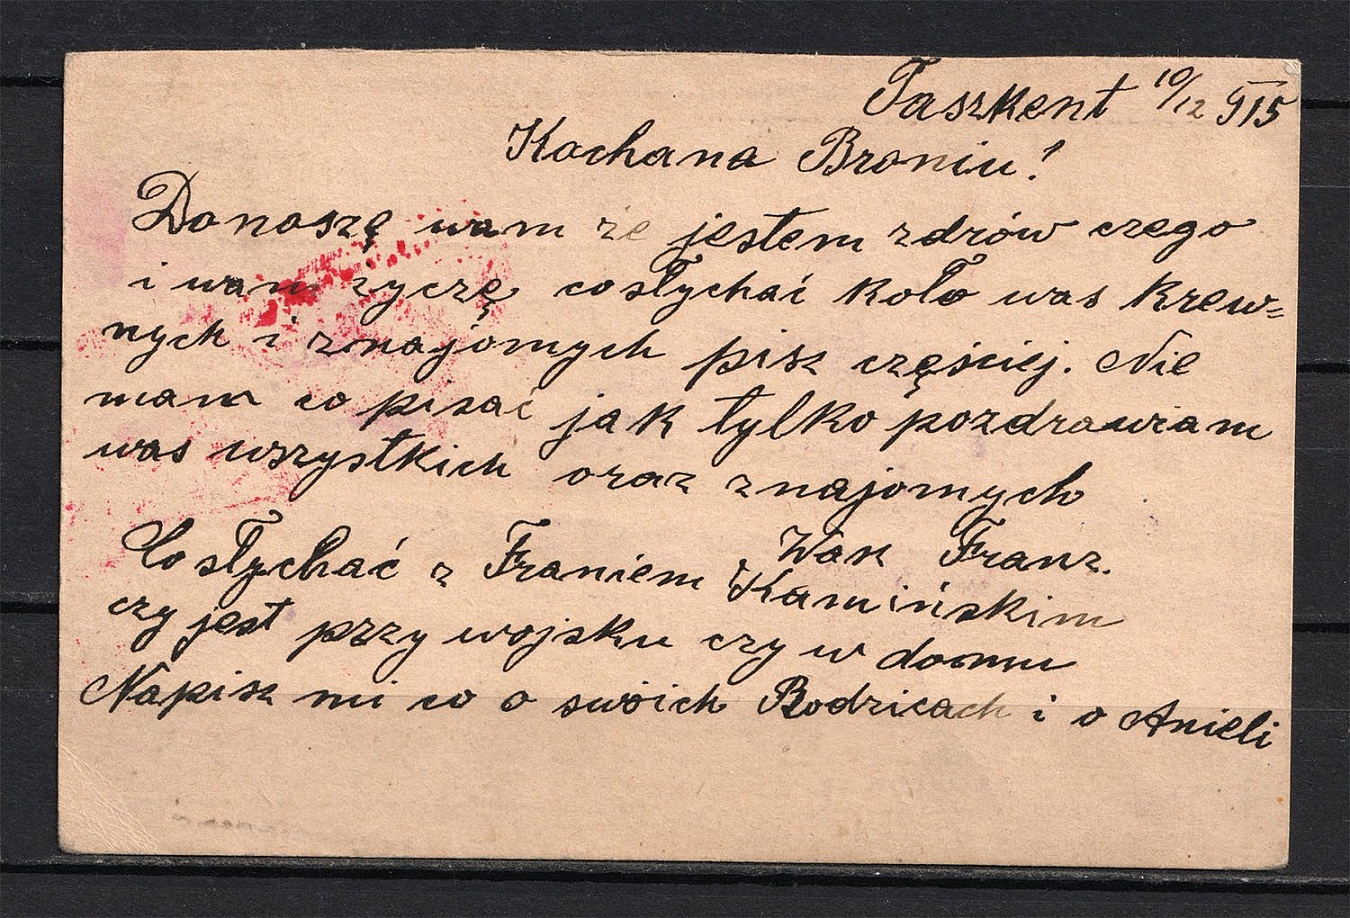 Taszkent 10/12 915
Kochana Broniu!
Donoszę wam że jestem zdrów czego
i wam zyczę co słychać koło was krew=
nych i znajomych pisz częściej. Nie
mam co pisać jak tylko pozdrawiam
was wszystkich oraz znajomych
Co słychać z Franiem Wasz Franz.
Kamińskim
czy jest przy wojsku czy w domu
Napisz mi co o swoich Rodzicach i o Anieli